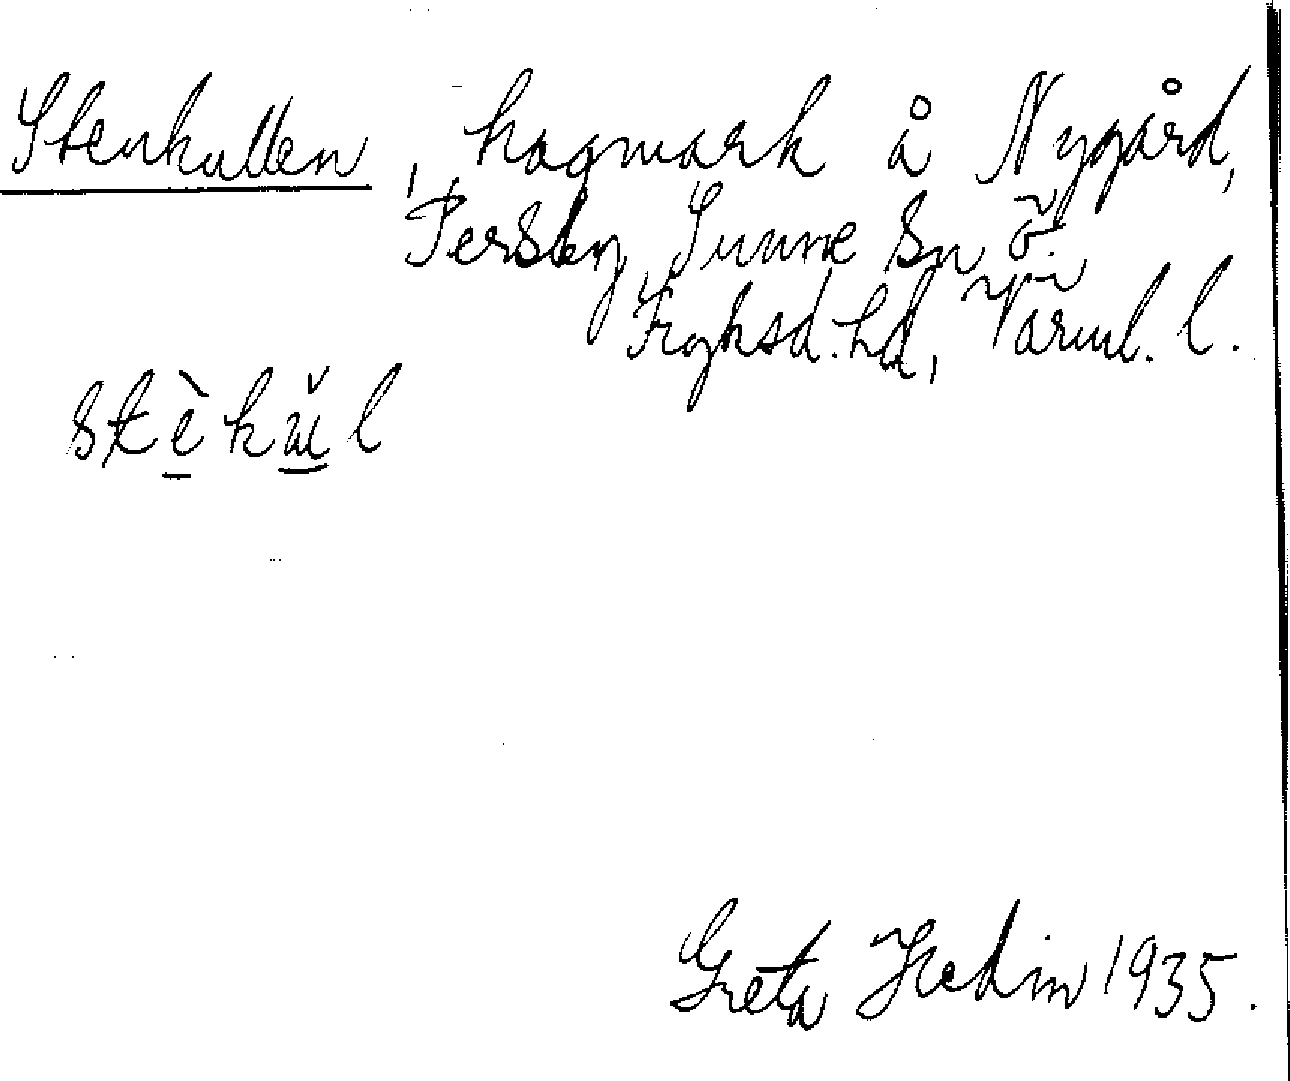 Stenkullen, hagmark å Nygård,
Persby, Sunne sn o.
Fryksd. hd, Värml. l.
stèkŭl
Greta Hedin 1935.